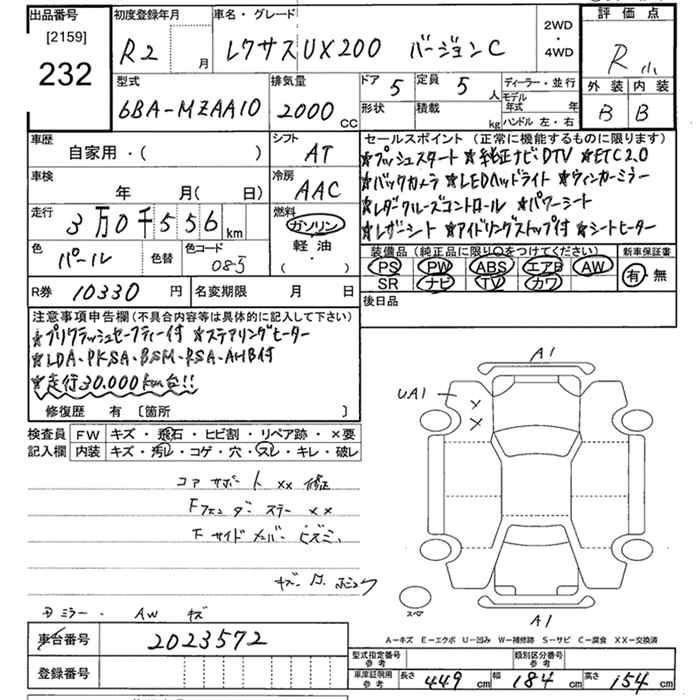 出品番号
[2159]
232
初度登録年月
R2 月
車名・グレード
レクサス UX200 バージョンC
2WD
・
4WD
評価点
R 小
外装 内装
B B
型式
6BA-MZAA10
排気量
2000 CC
ドア 5
定員 5 人
ディーラー・並行
形状
積載 kg
モデル年式 年
ハンドル 左・右
車歴
自家用・( )
シフト
AT
セールスポイント (正常に機能するものに限ります)
★プッシュスタート ★純正ナビ・DTV ★ETC2.0
★バックカメラ ★LEDヘッドライト ★ウィンカーミラー
★レダクルーズコントロール ★パワーシート
★レザーシート ★アイドリングストップ付 ★シートヒーター
車検
年 月( 日)
冷房
AAC
走行
3万0千556 km
燃料
ガソリン
軽油
( ・ )
色
パール
色替
色コード
085
装備品 (純正品に限り○をつけてください)
PS PW ABS エアB AW
SR ナビ TV カワ
新車保証書
有・無
R券 10330 円
名変期限 月 日
後日品
注意事項申告欄(不具合内容等は具体的に記入して下さい)
★プリクラッシュセーフティー付 ★ステアリングヒーター
★LDA・PKSA・BSM・RSA・AHB付
★走行30.000km台!!
修復歴 有 [箇所 ]
検査員 FW キズ・飛石・ヒビ割・リペア跡・×要
記入欄 内装 キズ・汚レ・コゲ・穴・スレ・キレ・破レ
コアサポート ×× 修正
Fフェンダーステー ××
Fサイドメンバー ヒズミ
ミラー・ AW キズ
A1
UA1
×
×
スペア
A1
A-キズ E-エクボ U-凹み W-補修跡 S-サビ C-腐食 XX-交換済
車台番号 2023572
登録番号
型式指定番号 参考
類別区分番号 参考
車庫証明用 参考 長さ 449 cm 幅 184 cm 高さ 154 cm